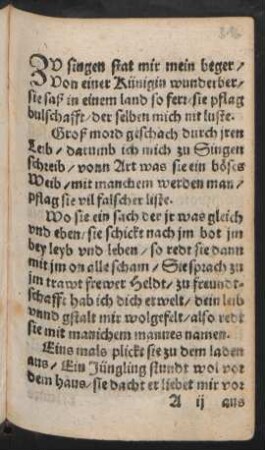 ZV singen stat mir mein beger /
Von einer Künigin wunderber /
sie saß in einem land so fern / sie pflag
bulschafft / der selben mich nit luste.
Groß mord geschach durch jren
Leib / darumb ich mich zu Singen
schreib / vonn Art was sie ein böses
Weib / mit manchem werden man /
pflag sie vil falscher liste.
Wo sie ein sach der jr was gleich
vnd eben / sie schickt nach jm bot jm
bey leyb vnd leben / so redt sie dann
mit jm on alle scham / Sie sprach zu
jm trawt frewer Heldt / zu freundt-
schafft hab ich dich erwelt / dein leib
vnnd gstalt mir wolgefelt / also redt
sie mit manichem mannes namen.
Eins mals plickt sie zu dem laden
aus / Ein Jüngling stundt wol vor
dem haus / sie dacht er liebet mir vor
A ij aus